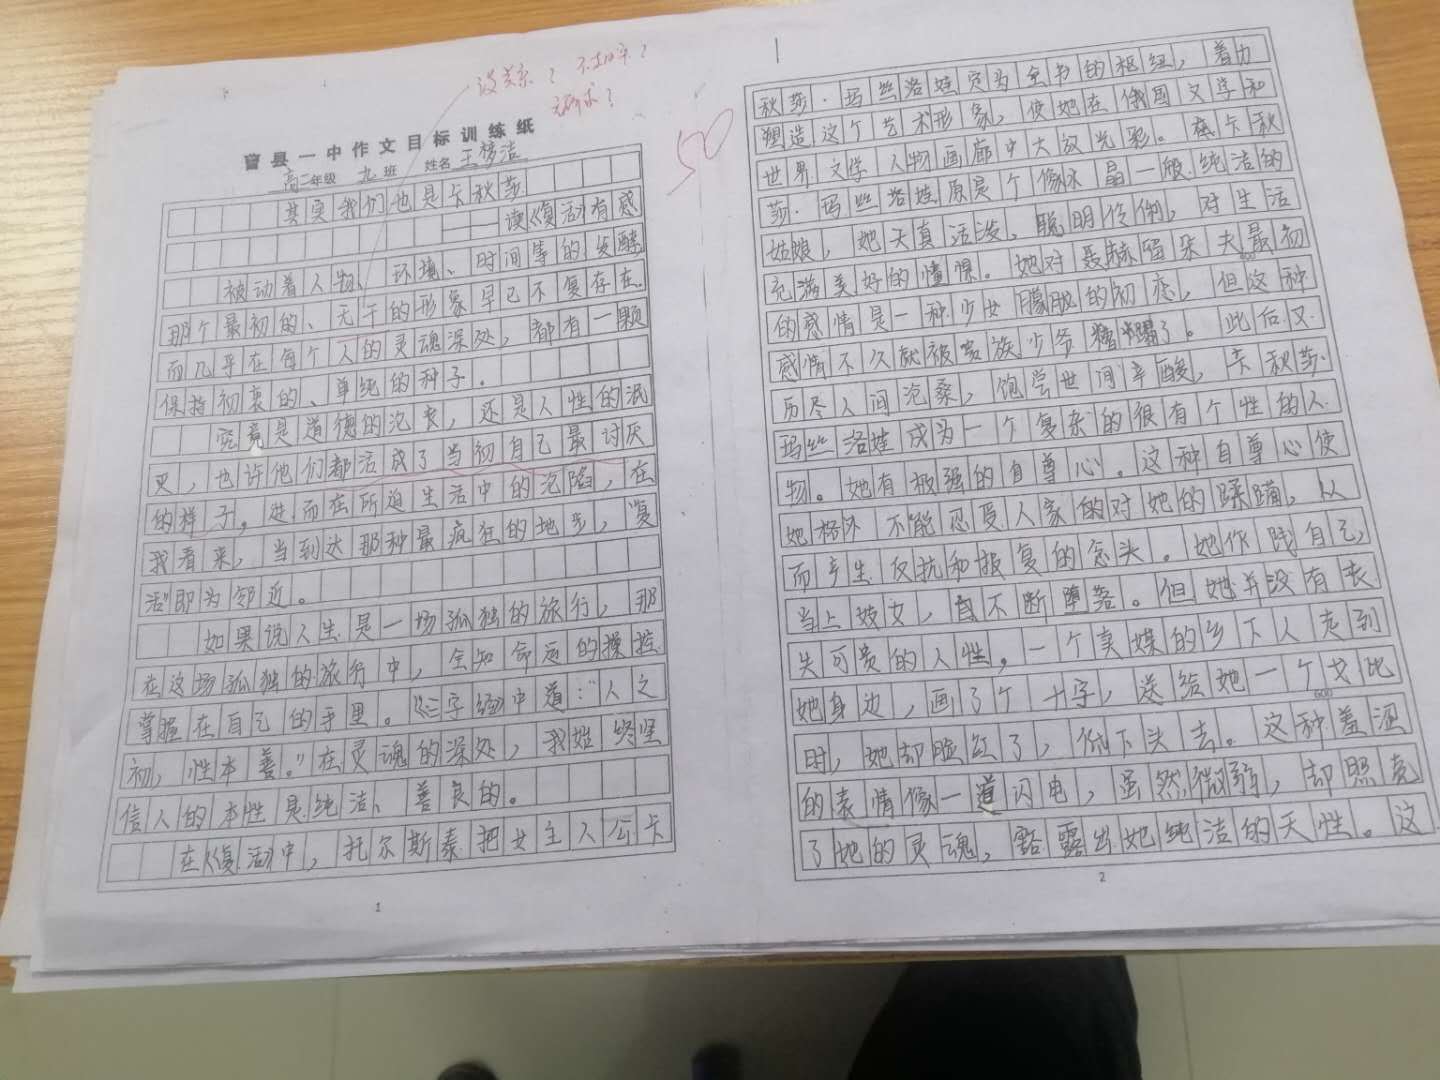 没关系？ 不切实？
50
曹县一中作文目标训练纸
高二年级 九班 姓名 王梦洁
其实我们也是卡秋莎
——读《复活》有感
被动着人物、环境、时间等的发酵
那个最初的、无干的形象早已不复存在.
而几乎在每个人的灵魂深处，都有一颗
保持初衷的、单纯的种子.
究竟是道德的沦丧，还是人性的泯
灭，也许他们都活成了当初自己最讨厌
的样子。进而在所迫生活中的沦陷，在
我看来，当到达那种最疯狂的地步，“复
活”即为邻近。
如果说人生是一场孤独的旅行，那
在这场孤独的旅行中，全知命运的操控
掌握在自己的手里。《三字经》中道：“人之
初，性本善。”在灵魂的深处，我始终坚
信人的本性是纯洁、善良的。
在《复活》中，托尔斯泰把女主人公卡
1
秋莎·玛丝洛娃定为全书的枢纽，着力
塑造这个艺术形象，使她在俄国文学和
世界文学人物画廊中大放光彩。卡秋
莎·玛丝洛娃原是个像水晶一般纯洁的
姑娘，她天真活泼，聪明伶俐，对生活
充满美好的憧憬。她对聂赫留朵夫最初
的感情是一种少女朦胧的初恋，但这种
感情不久就被贵族少爷糟蹋了。此后又
历尽人间沧桑，饱尝世间辛酸，卡秋莎·
玛丝洛娃成为一个复杂的很有个性的人
物。她有极强的自尊心。这种自尊心使
她格外不能忍受人家的对她的蹂躏，从
而产生反抗和报复的念头。她作践自己，
当上妓女，自不断堕落。但她并没有丧
失可贵的人性。一个卖媒的乡下人走到
她身边，画了个十字，送给她一个戈比
600
时，她却脸红了，低下头去。这种羞涩
的表情像一道闪电，虽然微弱，却照亮
了她的灵魂，露出她纯洁的天性。这
2